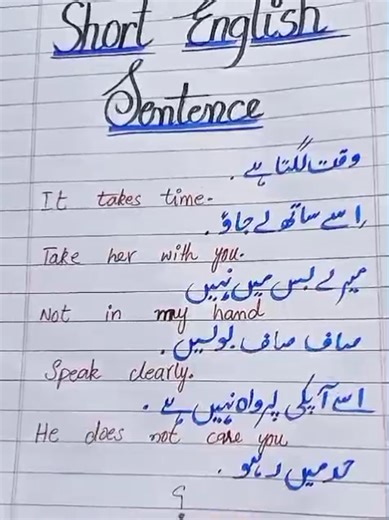 Short English
Sentence
وقت لگتا ہے.
It takes time.
اسے ساتھ لے جاؤ.
Take her with you.
میرے بس میں نہیں
Not in my hand
صاف صاف بولیں.
Speak clearly.
اسے آپکی پرواہ نہیں ہے.
He does not care you
حد میں رہو.
؟